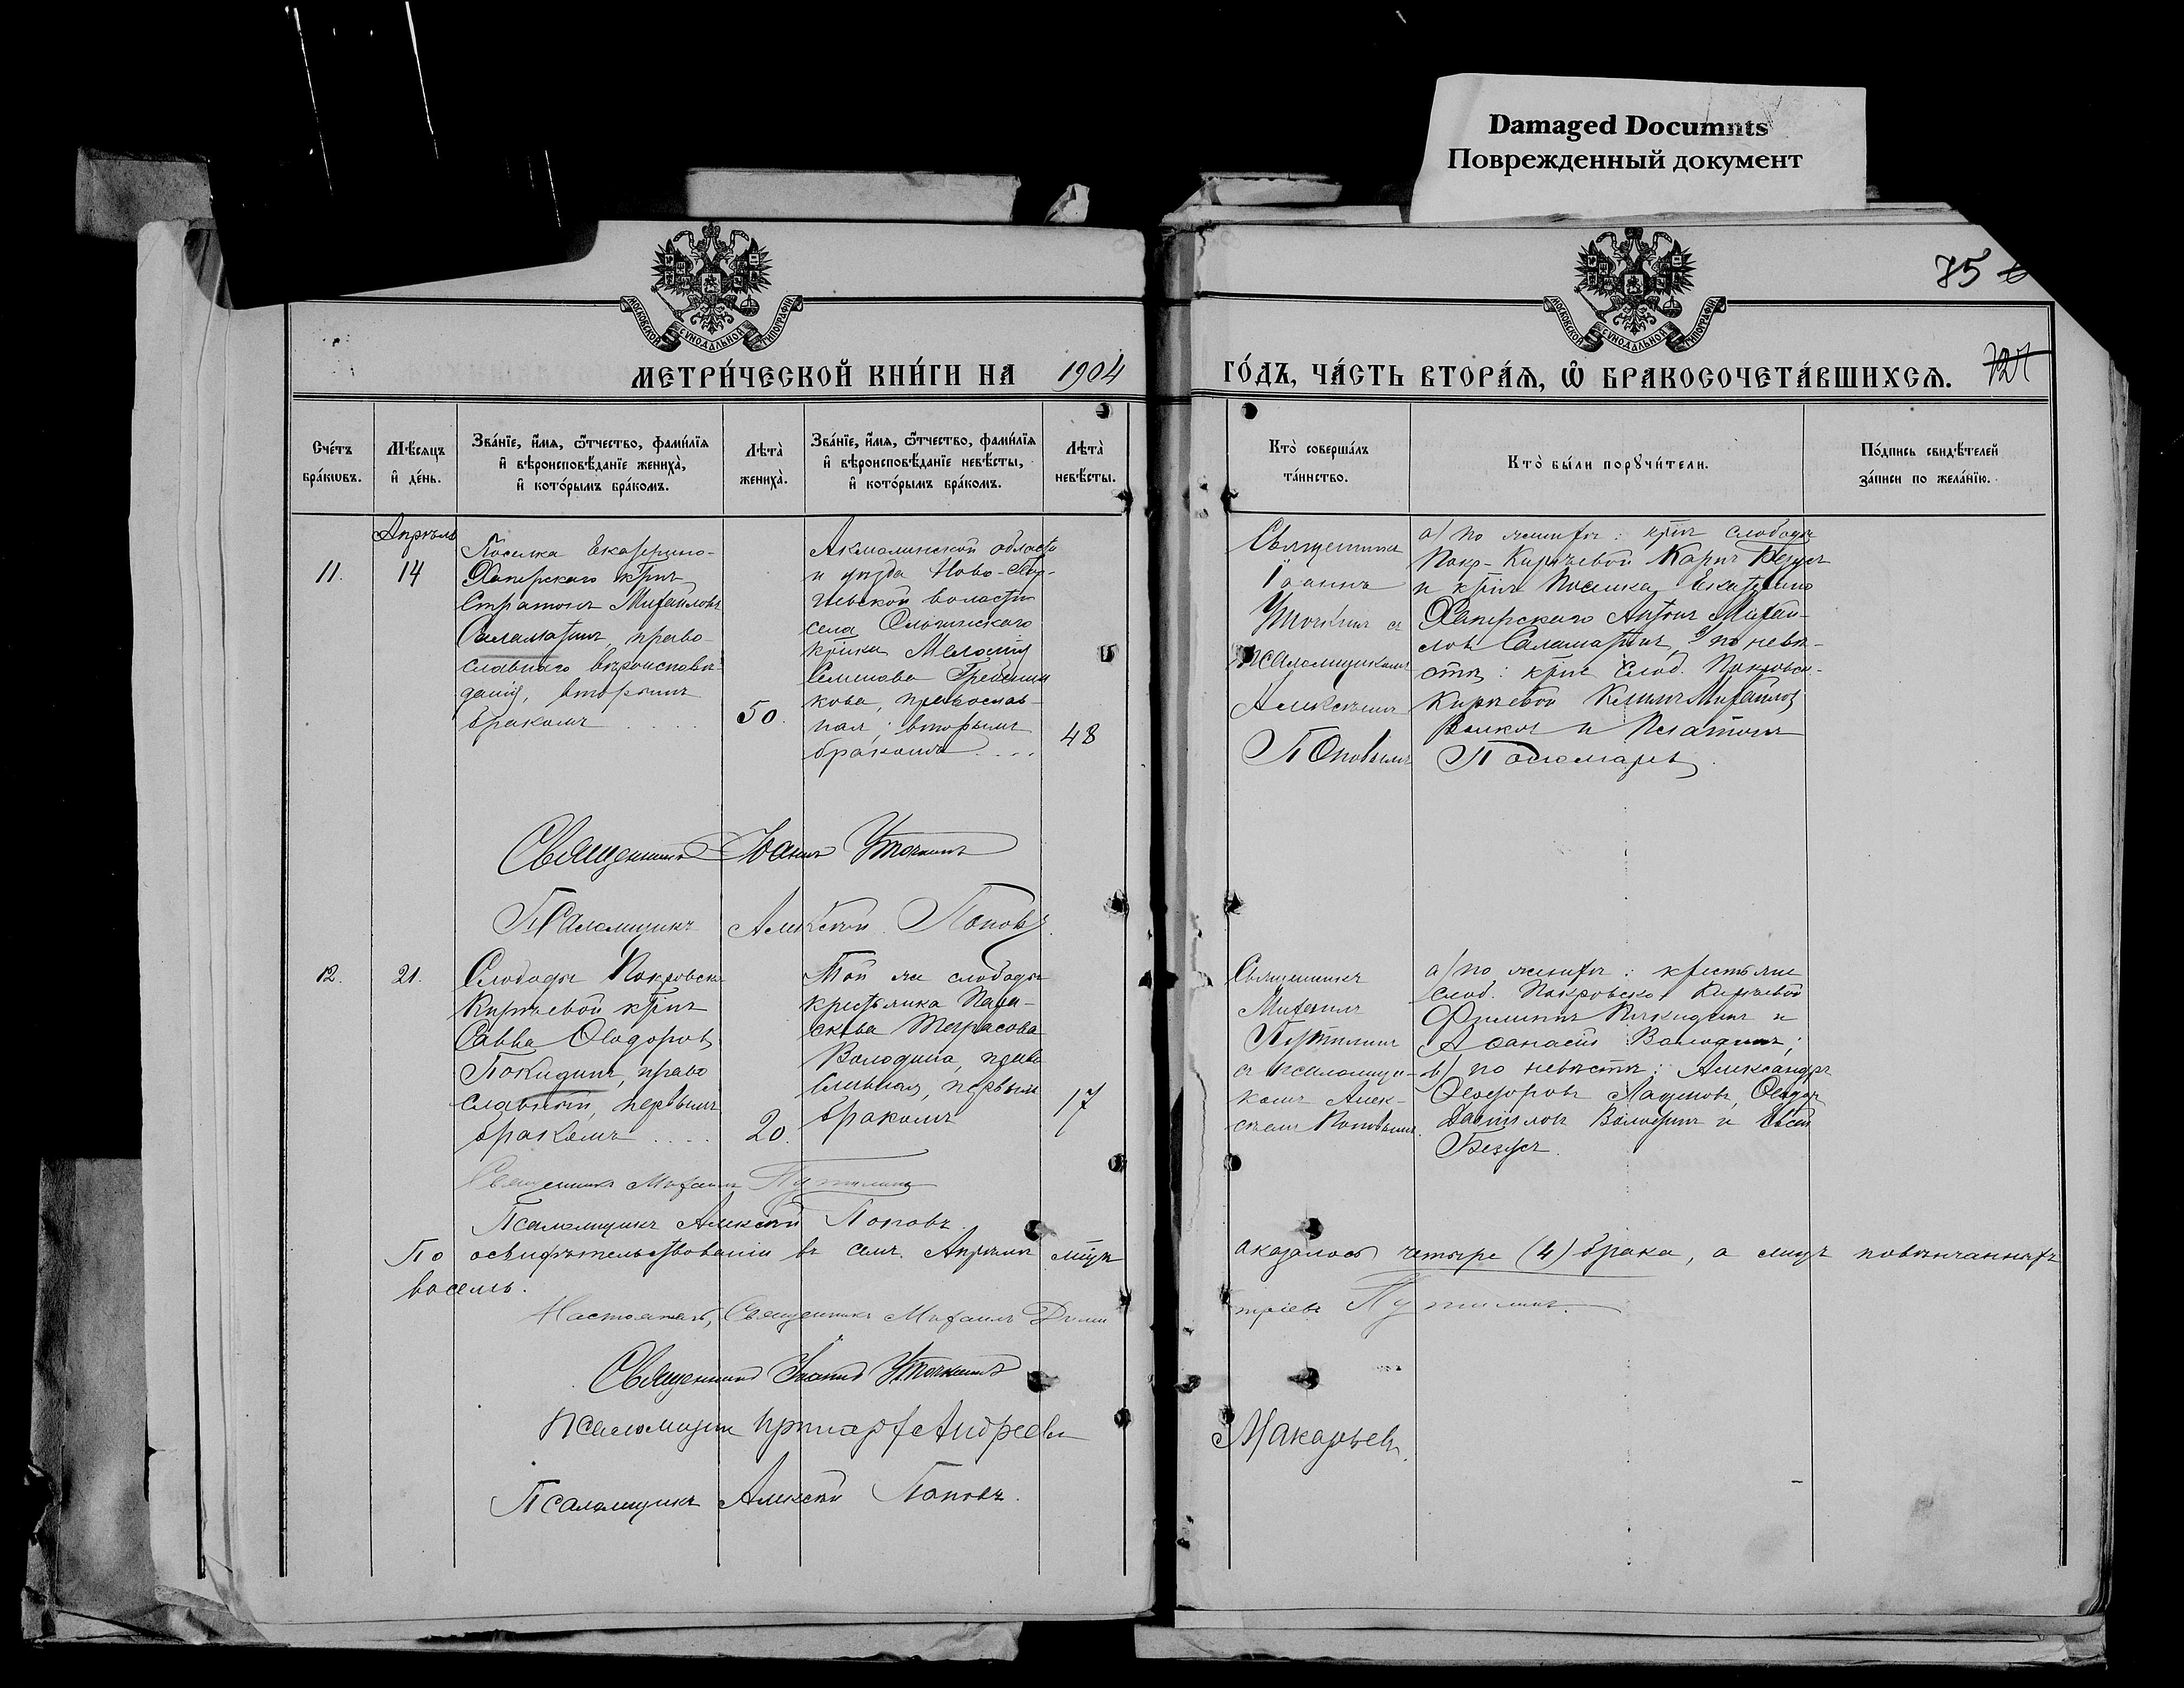 Damaged Documnts
Поврежденный документ
МОСКОВСКОЙ СУНОДАЛЬНОЙ ТИПОГРАФІИ
МОСКОВСКОЙ СУНОДАЛЬНОЙ ТИПОГРАФІИ
75
МЕТРИ́ЧЕСКОЙ КНИ́ГИ НА 1904 ГО́ДЪ, ЧА́СТЬ ВТОРА́Я, Ѽ БРАКОСОЧЕТА́ВШИХСЯ.
Сче́тъ бра́кωвъ.
Мѣ́сяцъ и҆ де́нь.
Зва́нїе, и҆́мя, ѻ҆́тчество, фами́лїя
и҆ вѣроисповѣ́данїе жениха̀,
и҆ кото́рымъ бра́комъ.
Лѣта̀ жениха̀.
Зва́нїе, и҆́мя, ѻ҆́тчество, фами́лїя
и҆ вѣроисповѣ́данїе невѣ́сты,
и҆ кото́рымъ бра́комъ.
Лѣта̀ невѣ́сты.
Кто̀ соверша́лъ
та́инство.
Кто̀ бы́ли порꙋчи́тели.
По́дпись свидѣ́телей
за́писи по жела́нїю.
Апрѣль
11.
14
Поселка Екатерино-
Хаперскаго кр̃нъ
Стратонъ Михайловъ
Саламатинъ, право-
славнаго вѣроисповѣ-
данія, вторымъ
бракомъ
50.
Акмолинской области
и уѣзда Ново-
волости
села Ольгинскаго
Семенова Гребенни
кова, православ-
ная, вторымъ
бракомъ
48
Священникъ
Іоаннъ
Уточкинъ съ
псаломщикомъ
Алексѣемъ
Поповымъ
а) по женихѣ: кр̃нъ слободы
Покр-Кирѣевой Карпъ Безусъ
и кр̃нъ поселка Екатерино
Хаперскаго Антонъ Михай-
ловъ Саламатинъ, по невѣ-
стѣ: кр̃не Слод. Покровско-
Кирѣевой Климъ Михайловъ
Волкъ и Платонъ
Пономарь
Священникъ Іоаннъ Уточкинъ
Псаломщикъ Алексѣй Поповъ.
12.
21.
Слободы Покровско
Кирѣевой кр̃нъ
Савва Ѳеодоровъ
Покидинъ, право
славный, первымъ
бракомъ
20.
Той же слободы
крестьянка Пара-
скева Тарасова
Володина, право
славная, первымъ
бракомъ
17
Священникъ
Михаилъ
Путилинъ
съ псаломщи-
комъ Алек-
сѣемъ Поповымъ.
а) по женихѣ: крестьяне
слоб. Покровско Кирѣевой
Филиппъ Покидинъ и
Аѳанасій Володинъ;
в) по невѣстѣ: Александръ
Ѳеодоровъ Ѳеодоръ
Даниловъ Володинъ и
Безусъ.
Священникъ Михаилъ Путилинъ
Псаломщикъ Алексѣй Поповъ.
По освидѣтельствованіи въ семъ Апрѣлѣ м̃цѣ оказалось четыре (4) брака, а лицъ повѣнчанныхъ
восемь.
Настоятель, Священникъ Михаилъ Дими тріевъ Путилинъ.
Священникъ Іоаннъ Уточкинъ
Псаломщик Андреев Макарьев.
Псаломщикъ Алексѣй Поповъ.